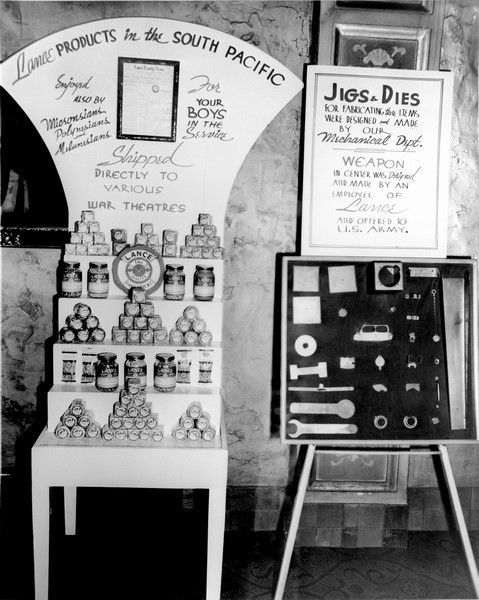 Lance PRODUCTS in the SOUTH PACIFIC
Enjoyed
ALSO BY
Micronesians
Polynesians
and
Melanesians
For
YOUR
BOYS
IN THE
Service
Shipped
DIRECTLY TO
VARIOUS
WAR THEATRES
LANCE
JIGS & DIES
FOR FABRICATING these ITEMS
WERE DESIGNED and MADE
BY OUR
Mechanical Dept.
WEAPON
IN CENTER WAS Designed
AND MADE BY AN
EMPLOYEE OF
Lance
AND OFFERED TO
U.S. ARMY.
LANCE
LANCE
LANCE